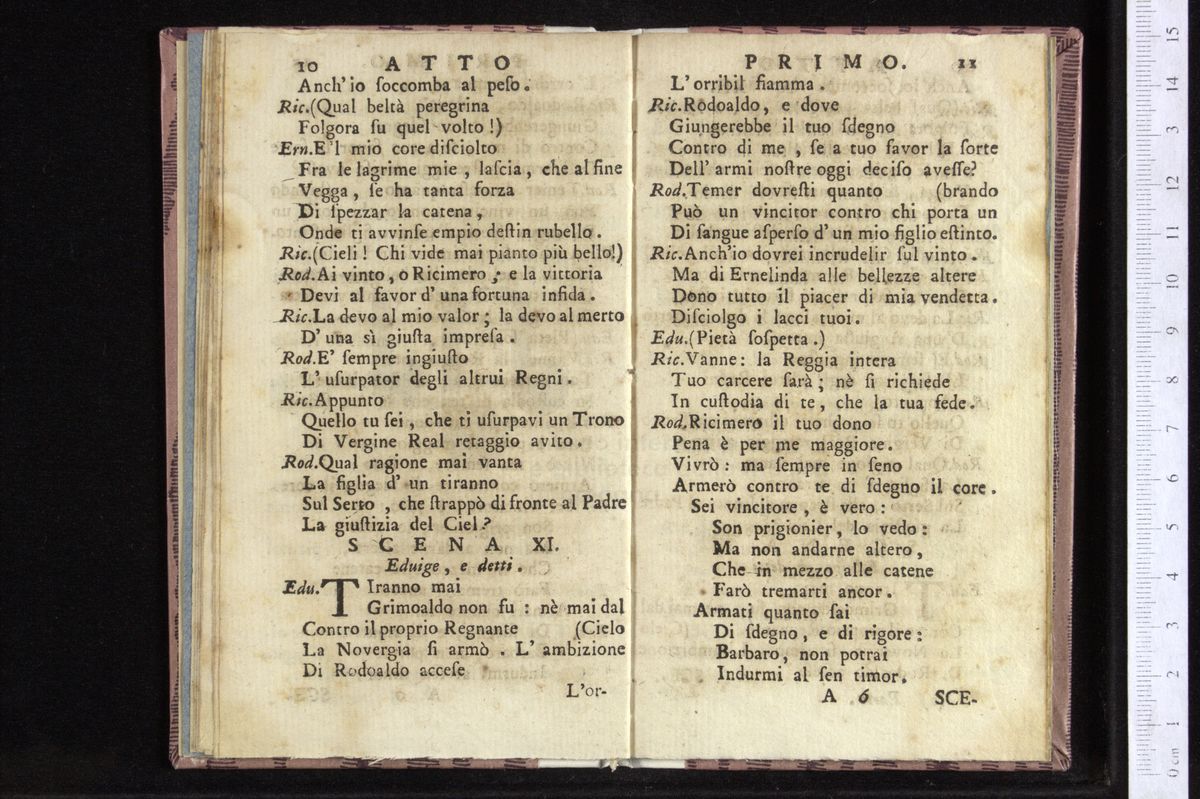 10 ATTO
Anch'io ſoccomba al peſo.
Ric.(Qual beltà peregrina
Folgora ſu quel volto!)
Ern.E'l mio core diſciolto
Fra le lagrime mie, laſcia, che al fine
Vegga, ſe ha tanta forza
Di ſpezzar la catena,
Onde ti avvinſe empio deſtin rubello.
Ric.(Cieli! Chi vide mai pianto più bello!)
Rod.Ai vinto, o Ricimero; e la vittoria
Devi al favor d'una fortuna infida.
Ric.La devo al mio valor; la devo al merto
D'una sì giuſta impreſa.
Rod.E' ſempre ingiuſto
L'uſurpator degli altrui Regni.
Ric.Appunto
Quello tu ſei, che ti uſurpavi un Trono
Di Vergine Real retaggio avito.
Rod.Qual ragione mai vanta
La figlia d'un tiranno
Sul Serto, che ſtrappò di fronte al Padre
La giuſtizia del Ciel?
SCENA XI.
Eduige, e detti.
Edu.TIranno mai
Grimoaldo non fu: nè mai dal
Contro il proprio Regnante (Cielo
La Novergia ſi armò. L'ambizione
Di Rodoaldo acceſe
L'or-
PRIMO. 11
L'orribil fiamma.
Ric.Rodoaldo, e dove
Giungerebbe il tuo ſdegno
Contro di me, ſe a tuo favor la ſorte
Dell'armi noſtre oggi deciſo aveſſe?
Rod.Temer dovreſti quanto (brando
Può un vincitor contro chi porta un
Di ſangue aſperſo d'un mio figlio eſtinto.
Ric.Anch'io dovrei incrudelir ſul vinto.
Ma di Ernelinda alle bellezze altere
Dono tutto il piacer di mia vendetta.
Diſciolgo i lacci tuoi.
Edu.(Pietà ſoſpetta.)
Ric.Vanne: la Reggia intera
Tuo carcere ſarà; nè ſi richiede
In cuſtodia di te, che la tua fede.
Rod.Ricimero il tuo dono
Pena è per me maggiore.
Vivrò: ma ſempre in ſeno
Armerò contro te di ſdegno il core.
Sei vincitore, è vero:
Son prigionier, lo vedo:
Ma non andarne altero,
Che in mezzo alle catene
Farò tremarti ancor.
Armati quanto ſai
Di ſdegno, e di rigore:
Barbaro, non potrai
Indurmi al ſen timor.
A 6 SCE-
0 cm 1 2 3 4 5 6 7 8 9 10 11 12 13 14 15